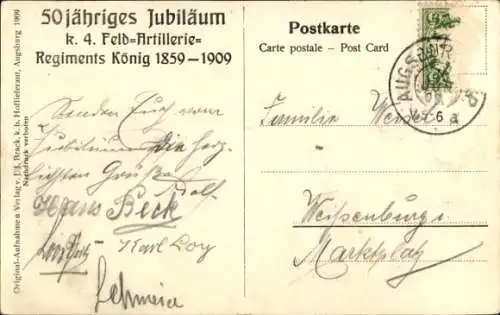 50jähriges Jubiläum
k. 4. Feld=Artillerie=
Regiments König 1859–1909
Original-Aufnahmen Verlag v. Fr. Brack, k. b. Hoflieferant, Augsburg 1909
Nachdruck verboten
Senden Euch vom
Jubiläum die herz-
lichsten Grüße
Hans Beck
Karl Loy
Postkarte
Carte postale – Post Card
AUGSBURG
Familie
Weißenburg i.
Marktplatz